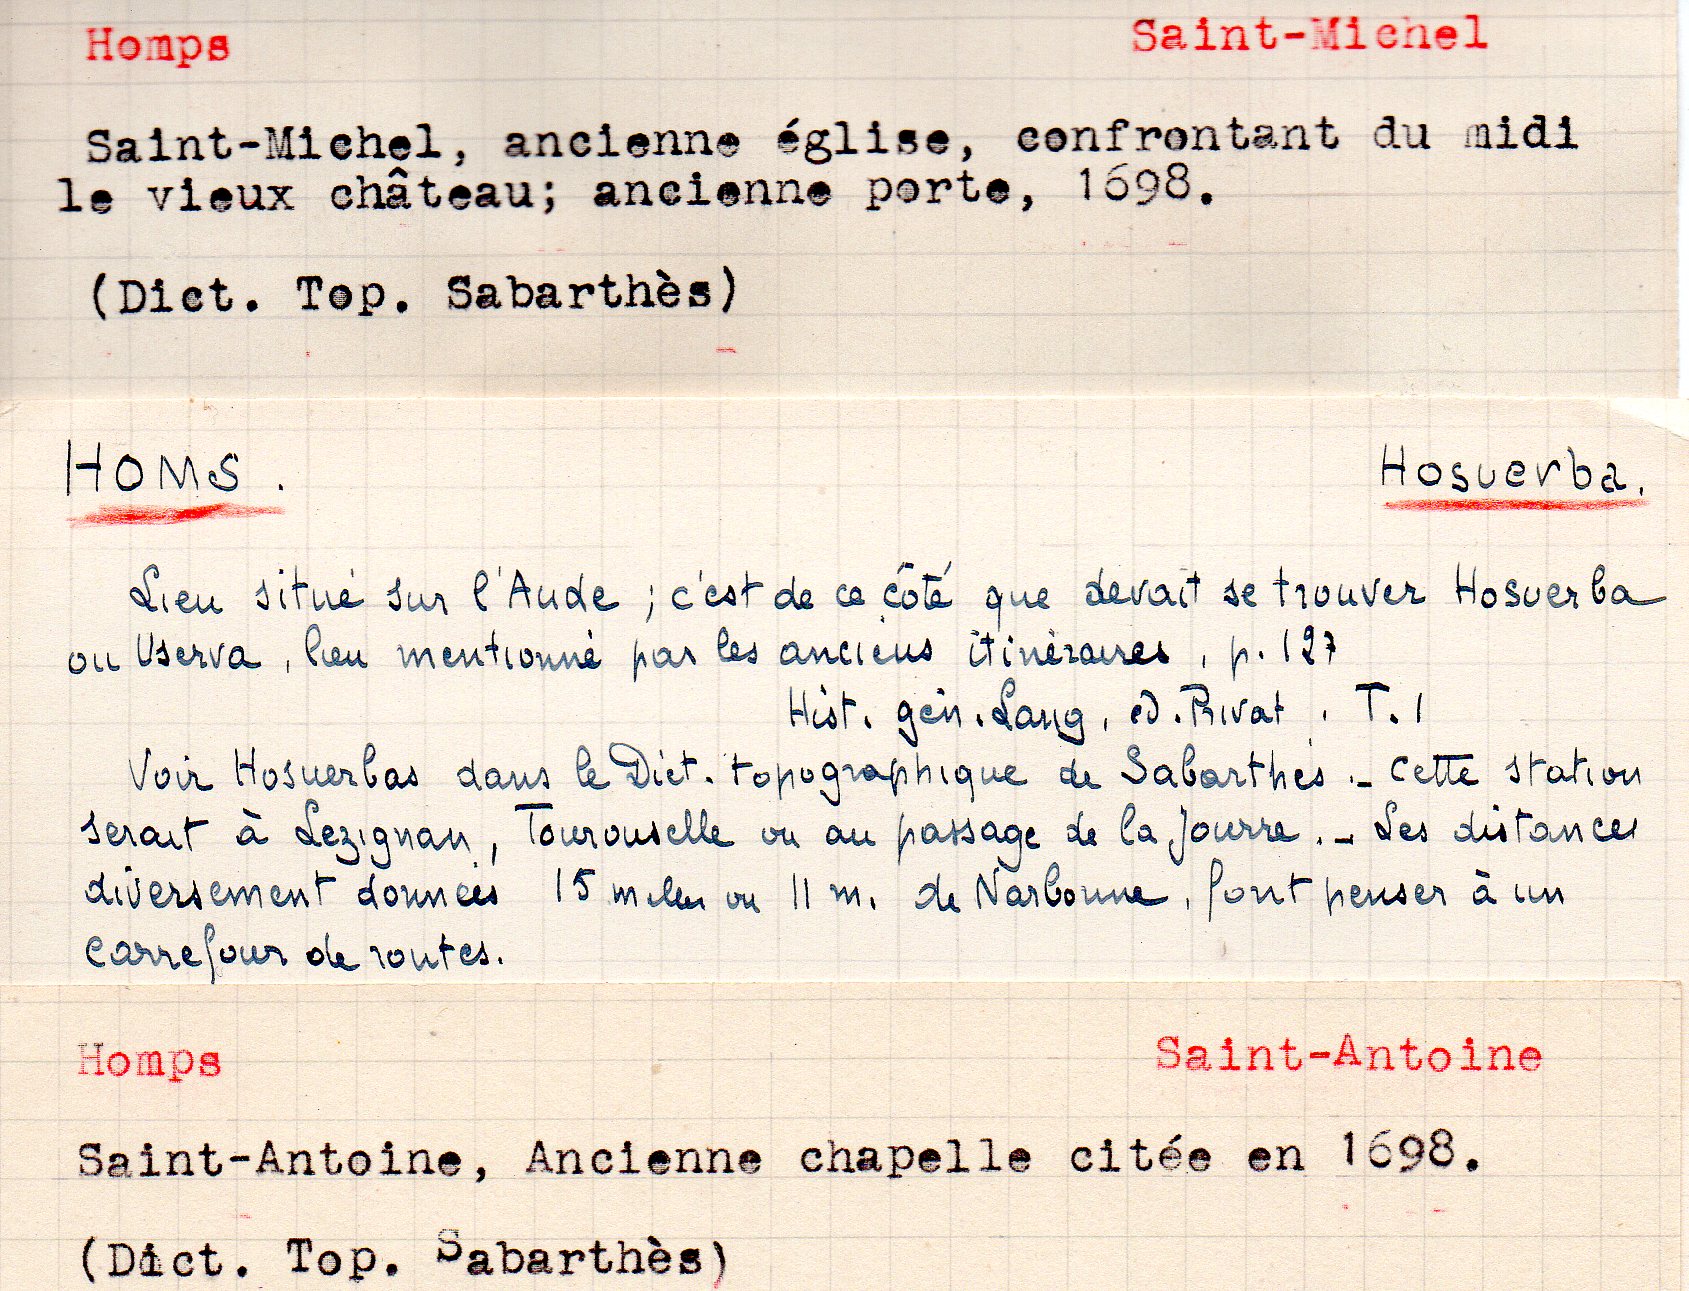 Homps Saint-Michel
Saint-Michel, ancienne église, confrontant du midi
le vieux château; ancienne porte, 1698.
(Dict. Top. Sabarthès)
HOMS. Hosuerba.
Lieu situé sur l'Aude ; c'est de ce côté que devait se trouver Hosuerba
ou Userva, lieu mentionné par les anciens itinéraires, p. 127
Hist. gén. Lang, éd. Privat, T. I
Voir Hosuerbas dans le Dict. topographique de Sabarthès. - Cette station
serait à Lezignan, Tourouselle ou au passage de la Jourre. - Les distances
diversement données 15 milles ou 11 m. de Narbonne, font penser à un
carrefour de routes.
Homps Saint-Antoine
Saint-Antoine, Ancienne chapelle citée en 1698.
(Dict. Top. Sabarthès)